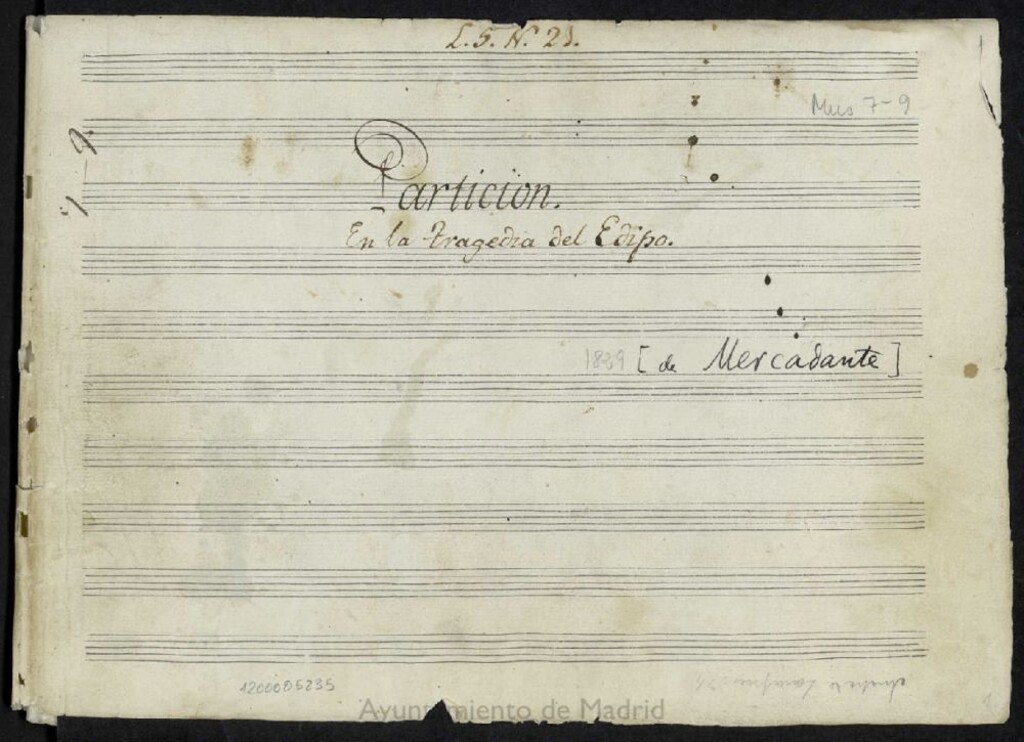 L. 5. N. 21.
Mus 7-9
7-9.
Particion.
En la tragedia del Edipo.
1829 [de Mercadante]
1200005235
Ayuntamiento de Madrid